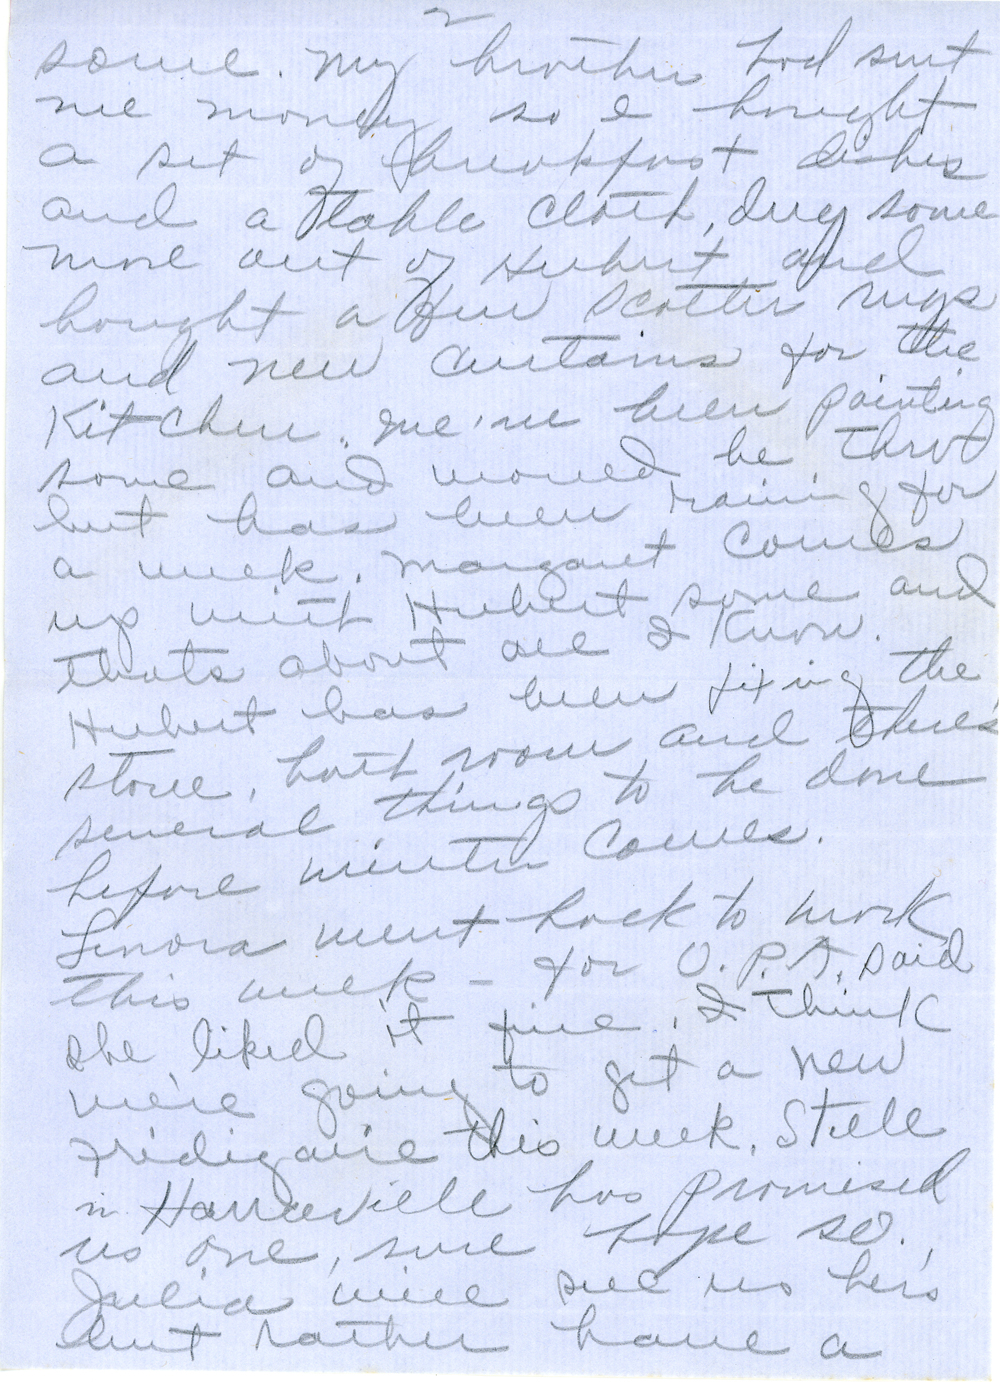 2
some. My brothers had sent
me money so I bought
a set of breakfast dishes
and a table cloth, dug some
more out of Hubert and
bought a few scatter rugs
and new curtains for the
Kitchen. We've been painting
some and would be thro
but has been raining for
a week. Margaret comes
up with Hubert some and
thats about all I know.
Hubert has been fixing the
stove, bath room and there's
several things to be done
before winter comes.
Lenora went back to work
this week - for O.P.A. said
she liked it fine. I think
we're going to get a new
Fridigaire this week. Still
in has promised
us one, sure hope so.
Julia will sell us hers
but rather have a